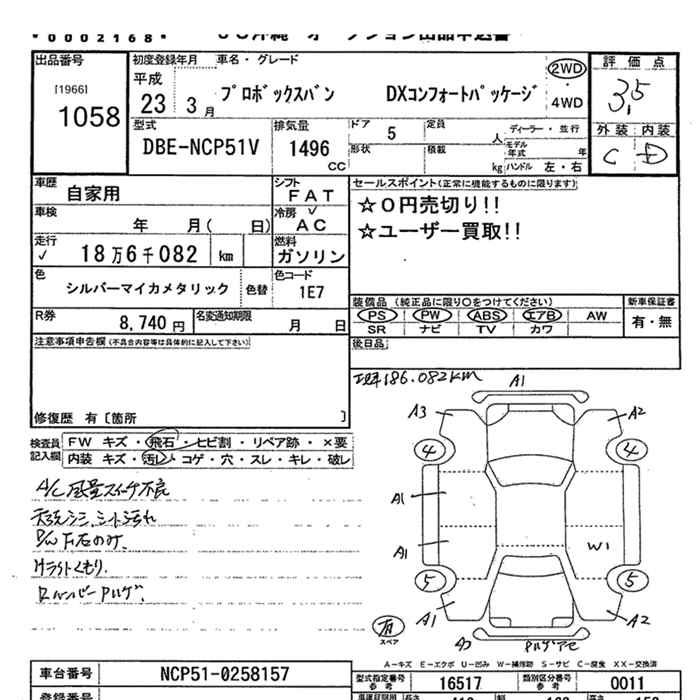 *00002168*
出品番号
[1966]
1058
初度登録年月 車名・グレード
平成
23 3月
プロボックスバン DXコンフォートパッケージ
2WD
・
4WD
評価点
3,5
外装 内装
C D
型式
DBE-NCP51V
排気量
1496
CC
ドア
5
定員
人
ディーラー・並行
形状
積載
kg
モデル年式 年
ハンドル 左・右
車歴
自家用
シフト
FAT
車検
年 月( 日)
冷房
AC
走行
✓ 18万6千082 km
燃料
ガソリン
色
シルバーマイカメタリック
色替
色コード
1E7
R券
8,740 円
名変通知期限
月 日
セールスポイント(正常に機能するものに限ります)
☆0円売切り!!
☆ユーザー買取!!
装備品 (純正品に限り○をつけてください)
PS PW ABS エアB AW
SR ナビ TV カワ
新車保証書
有・無
後日品
注意事項申告欄(不具合内容等は具体的に記入して下さい)
修復歴 有〔箇所 〕
検査員記入欄
FW キズ・飛石・ヒビ割・リペア跡・×要
内装 キズ・汚レ・コゲ・穴・スレ・キレ・破レ
A/C 風量スイッチ不良
186.082km
A1
A3
A2
4
4
A1
A1
W1
5
5
A1
A2
有
スペア
A-キズ E-エクボ U-凹み W-補修跡 S-サビ C-腐食 XX-交換済
車台番号
NCP51-0258157
型式指定番号
参考
16517
類別区分番号
参考
0011
登録番号